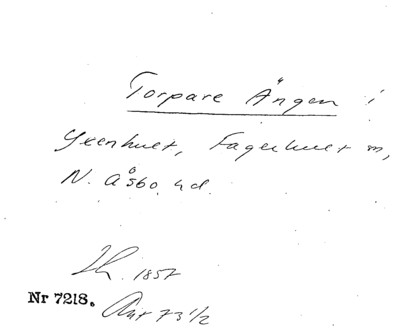 Torpare Ängen i
Geenhult, Fagerhult m,
N. Åsbo hd.
1857
Nr 7218. Ant 73 1/2